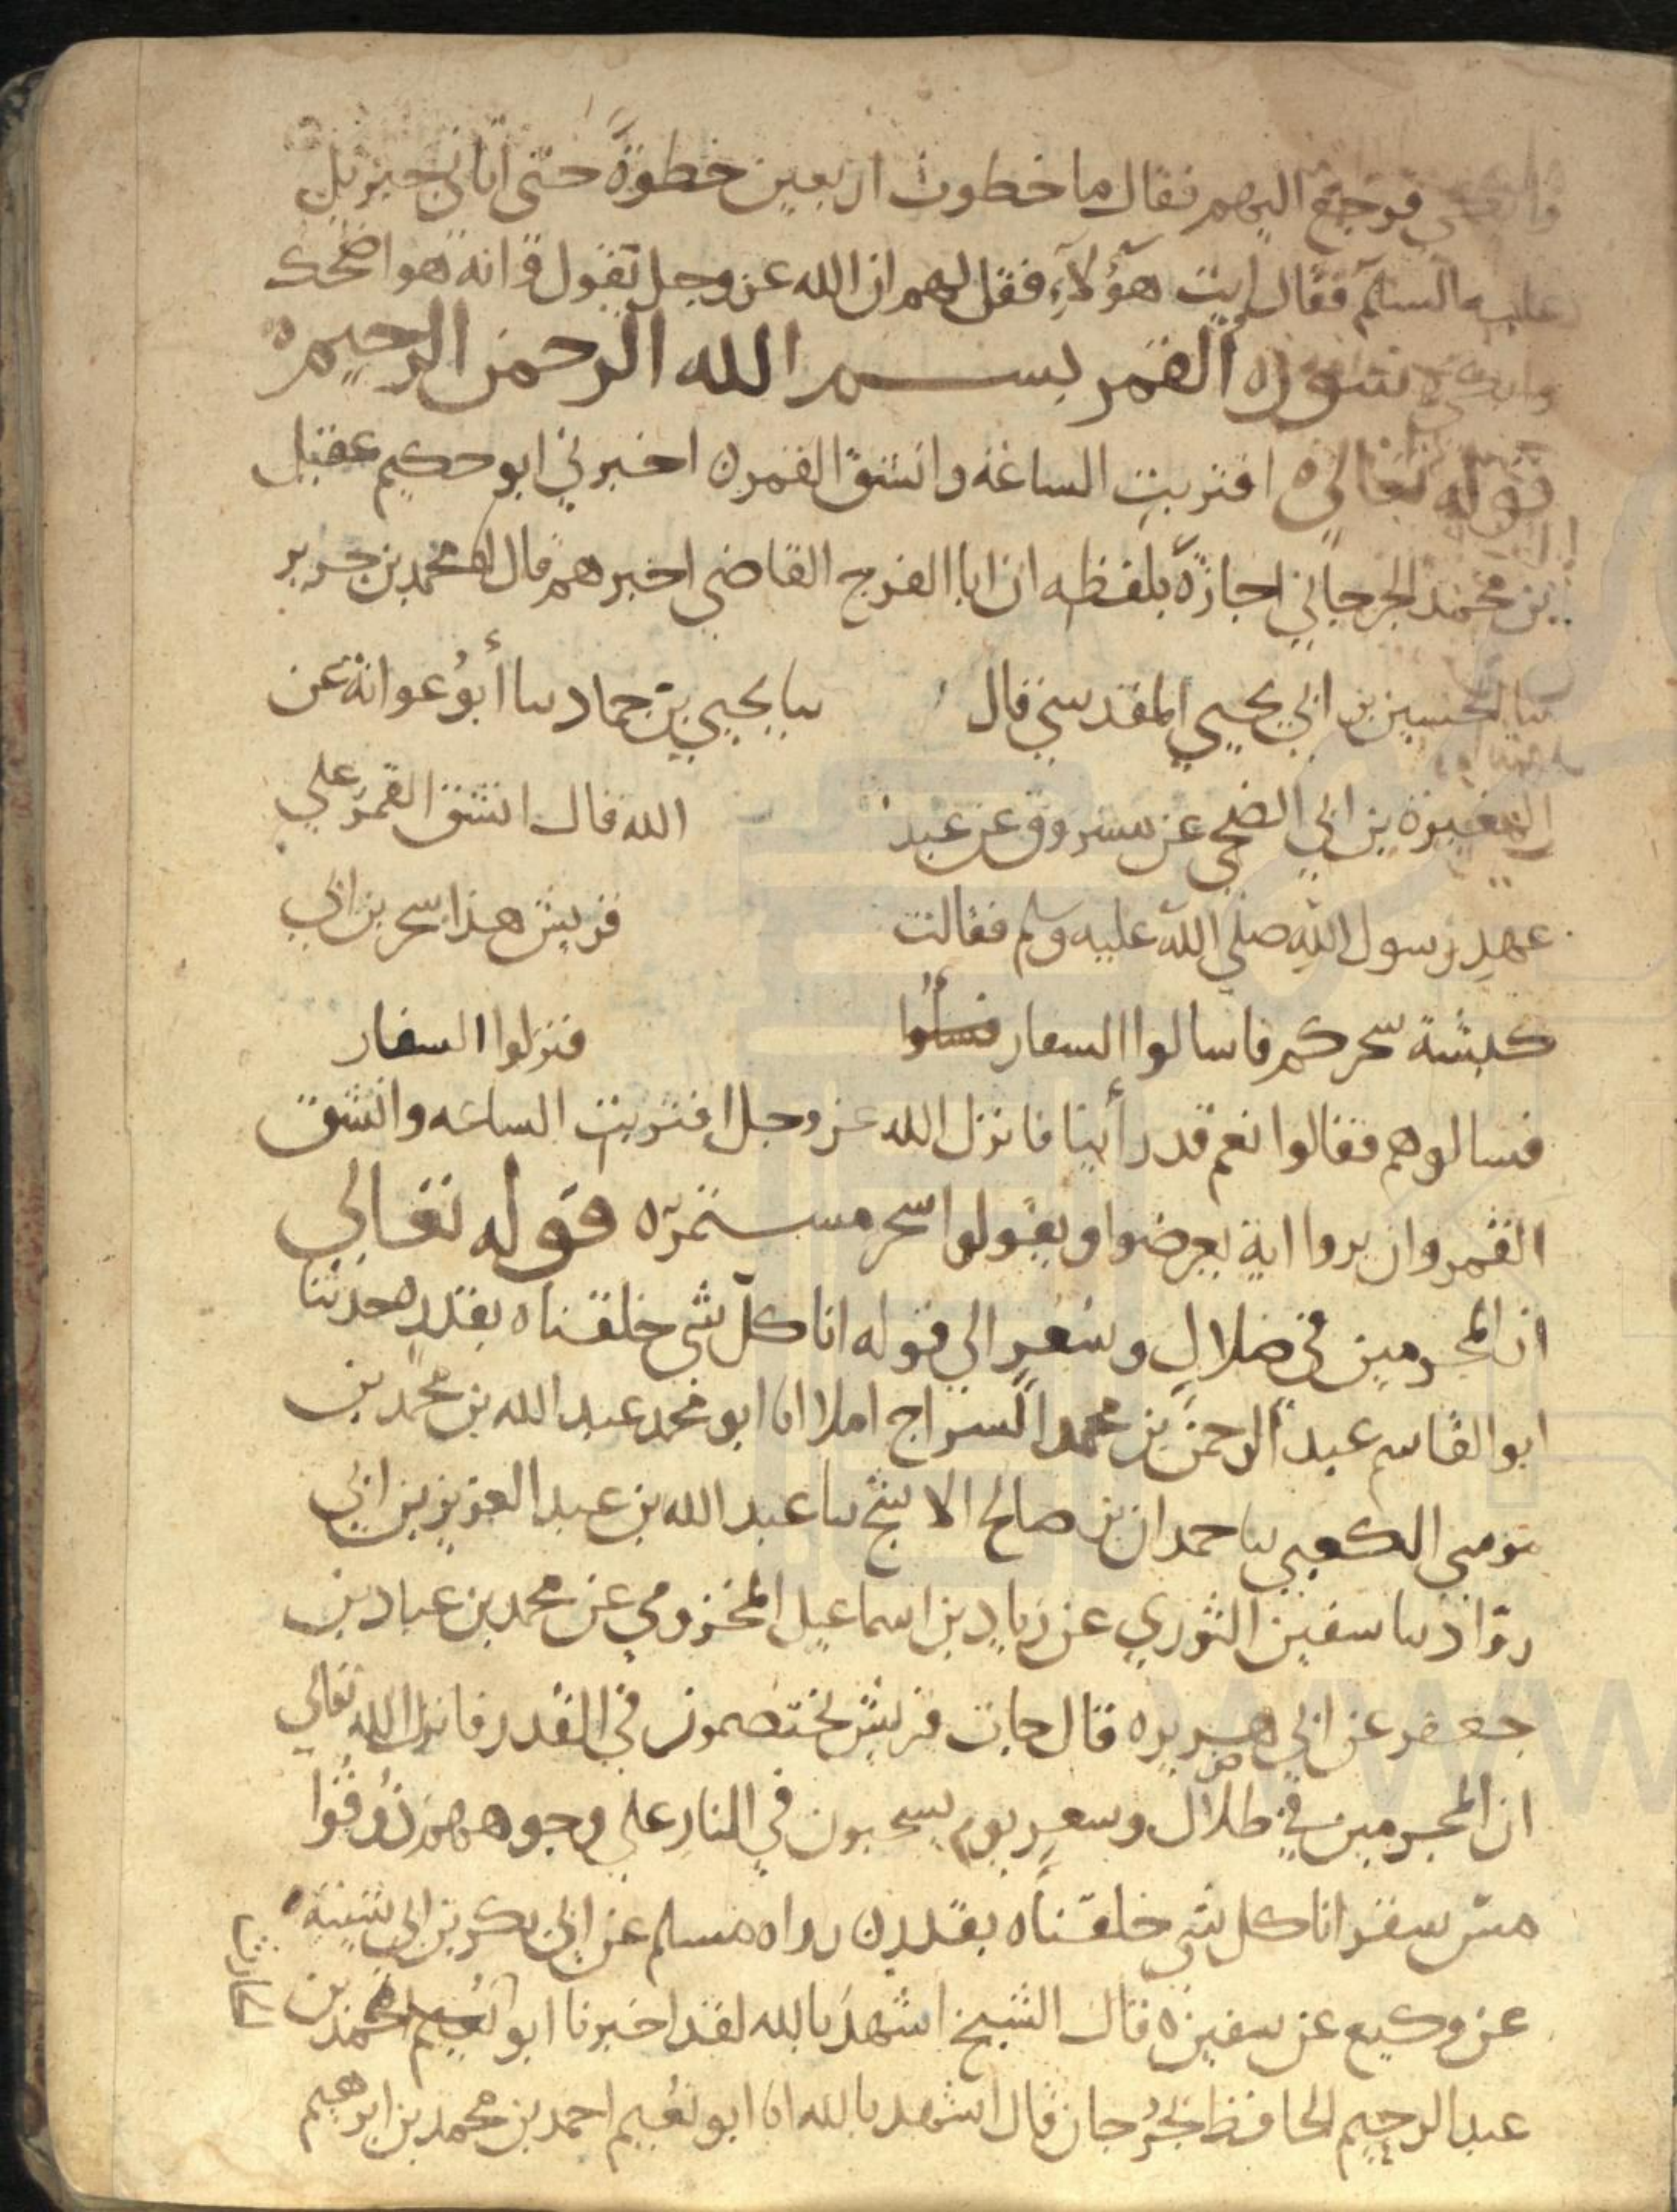 فرجع اليهم فقال ما خطوت اربعين خطوة حتى اتاني جبريل
عليه السلام فقال ايت هؤلاء فقل لهم ان الله عز وجل يقول وانه هو اضحك
وابكى سورة القمر بسم الله الرحمن الرحيم
قوله تعالى اقتربت الساعة وانشق القمر اخبرني ابو حكيم عقيل
بن محمد الجرجاني اجازة بلفظه ان ابا الفرج القاضي اخبرهم قال انا محمد بن جرير
نا الحسين بن ابي يحيى المقدسي قال نا يحيى بن حماد نا أبو عوانة عن
المغيرة بن ابي الضحى عن مسروق عن عبد الله قال انشق القمر على
عهد رسول الله صلى الله عليه وسلم فقالت قريش هذا سحر بن ابي
كبشة سحركم فاسالوا السفار فنزلوا السفار
فسالوهم فقالوا نعم قد رأينا فانزل الله عز وجل اقتربت الساعه وانشق
القمر وان يروا اية يعرضوا ويقولوا سحر مستمر قوله تعالى
ان المجرمين في ضلال وسعر الى قوله انا كل شي خلقناه بقدر حدثنا
ابو القاسم عبد الرحمن بن محمد السراج املا انا ابو محمد عبد الله بن محمد بن
موسى الكعبي نا حمدان بن صالح الاشج نا عبد الله بن عبد العزيز بن ابي
روّاد نا سفين الثوري عن زياد بن اسماعيل المخزومي عن محمد بن عباد بن
جعفر عن ابي هريره قال جات قريش يختصمون في القدر فانزل الله تعالى
ان المجرمين في ظلال وسعر يوم يسحبون في النار على وجوههم ذُوقُوا
مسّ سقر انا كل شي خلقناه بقدر رواه مسلم عن ابي بكر بن ابي شيبة
عن وكيع عن سفين قال الشيخ اشهد بالله لقد اخبرنا ابو بن
عبد الرحيم الحافظ بجُرجان قال اشهد بالله انا ابو نعيم احمد بن محمد بن ابرهيم